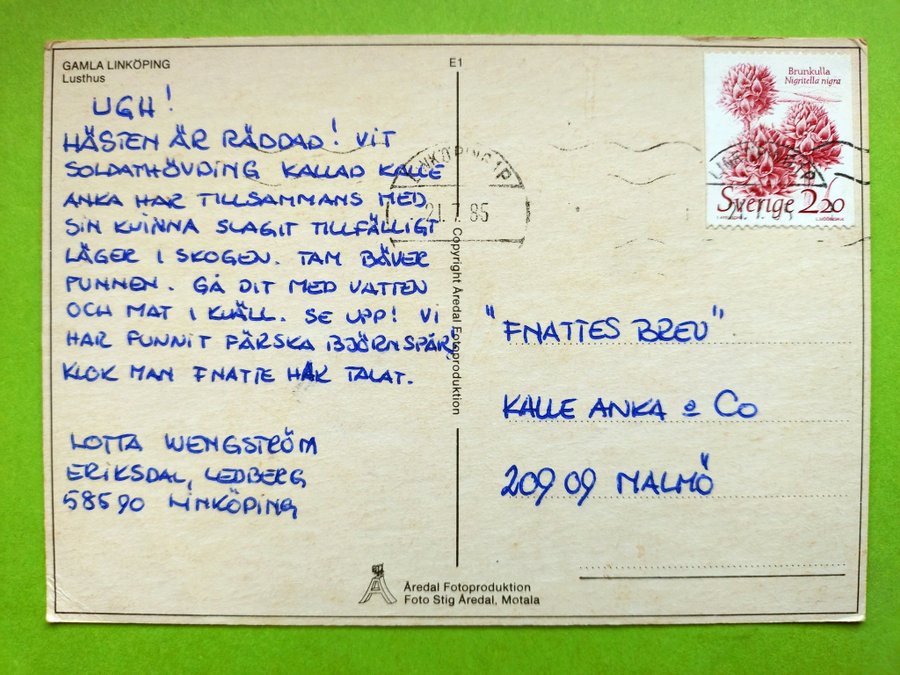 GAMLA LINKÖPING
Lusthus
E1
UGH!
HÄSTEN ÄR RÄDDAD! VIT
SOLDATHÖVDING KALLAD KALLE
ANKA HAR TILLSAMMANS MED
SIN KVINNA SLAGIT TILLFÄLLIGT
LÄGER I SKOGEN. TAM BÄVER
FUNNEN. GÅ DIT MED VATTEN
OCH MAT I KVÄLL. SE UPP! VI
HAR FUNNIT FÄRSKA BJÖRNSPÅR!
KLOK MAN FNATTE HAR TALAT.
LOTTA WENGSTRÖM
ERIKSDAL, LEDBERG
58590 LINKÖPING
Copyright Åredal Fotoproduktion
LINKÖPING 1P
21.7.85
Brunkulla
Nigritella nigra
Sverige 220
"FNATTES BREV"
KALLE ANKA & CO
209 09 MALMÖ
Åredal Fotoproduktion
Foto Stig Åredal, Motala